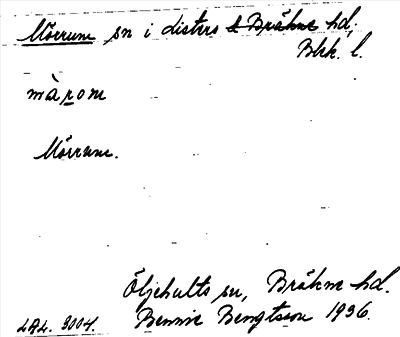 Mörrum sn i Listers & Bräkne hd,
Blek. l.
màrom
Mörrum.
Öljehults sn, Bräkne hd.
LAL. 3004. Bennie Bengtsson 1936.